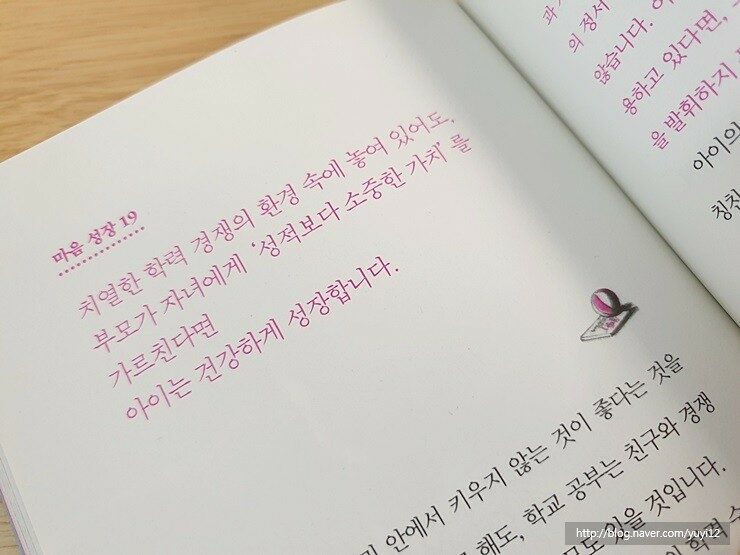 마음 성장 19
치열한 학력 경쟁의 환경 속에 놓여 있어도,
부모가 자녀에게 '성적보다 소중한 가치'를
가르친다면
아이는 건강하게 성장합니다.
안에서 키우지 않는 것이 좋다는 것을
해도, 학교 공부는 친구와 경쟁
있을 것입니다.
학력
의 정서
않습니다.
용하고 있다면,
을 발휘하지
아이의
칭찬
http://blog.naver.com/yuyi12